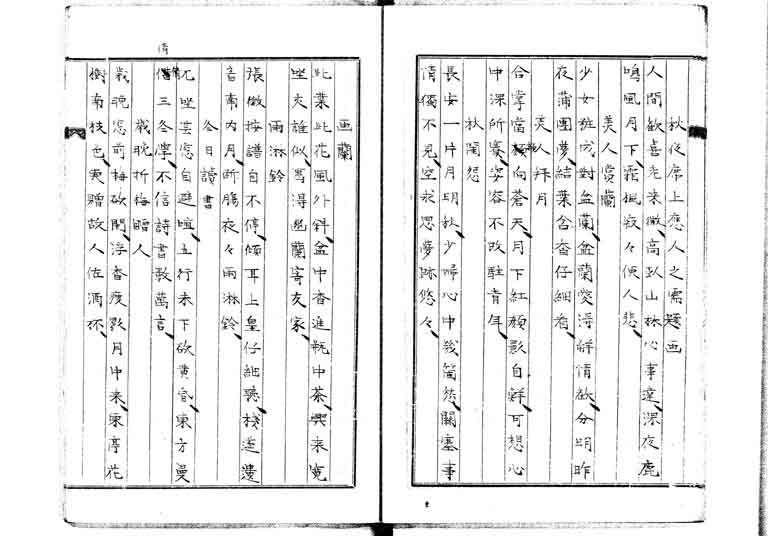 秋夜席上應人之需題画
人間歓喜先来徴高臥山林心事違深夜鹿
鳴風月下霜楓寂々使人悲
美人賞蘭
少女粧成對盆蘭盆蘭愛得鮮情欲分明昨
夜蒲團夢結葉含香仔細看
美人拜月
合掌當樓向蒼天月下紅顔影自鮮可想心
中深所賽姿容不改駐青年
秋閨怨
長安一片月明秋少婦心中幾箇愁關塞事
情獨不見空求思夢跡悠々
画蘭
此葉此花風外斜盆中香進瓶中茶興来寛
坐交誰似写得幽蘭寄友家
雨淋鈴
張徽按譜自不停傾耳上皇仔細聴棧道遺
音南内月断腸夜々雨淋鈴
冬日讀書
兀坐芸窓自避喧五行未下欲黄昏東方曼
倩三冬學不信詩書數萬言
歳晩折梅贈人
歳晩窓前梅欲開浮香度影月中来東亭花
樹南枝色更贈故人佐酒杯
倩